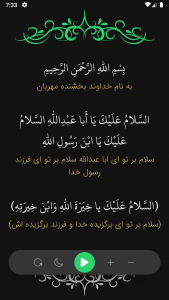 7:33
بِسْمِ اللّٰهِ الرَّحْمٰنِ الرَّحِيمِ
به نام خداوند بخشنده مهربان
السَّلامُ عَلَيْكَ يَا أَبا عَبْدِاللّٰهِ السَّلامُ
عَلَيْكَ يَا ابْنَ رَسُولِ اللّٰهِ
سلام بر تو ای ابا عبدالله سلام بر تو ای فرزند
رسول خدا
(السَّلامُ عَلَيْكَ يا خِيَرَةَ اللّٰهِ وَابْنَ خِيَرَتِهِ)
(سلام بر تو ای برگزیده خدا و فرزند برگزیده اش)